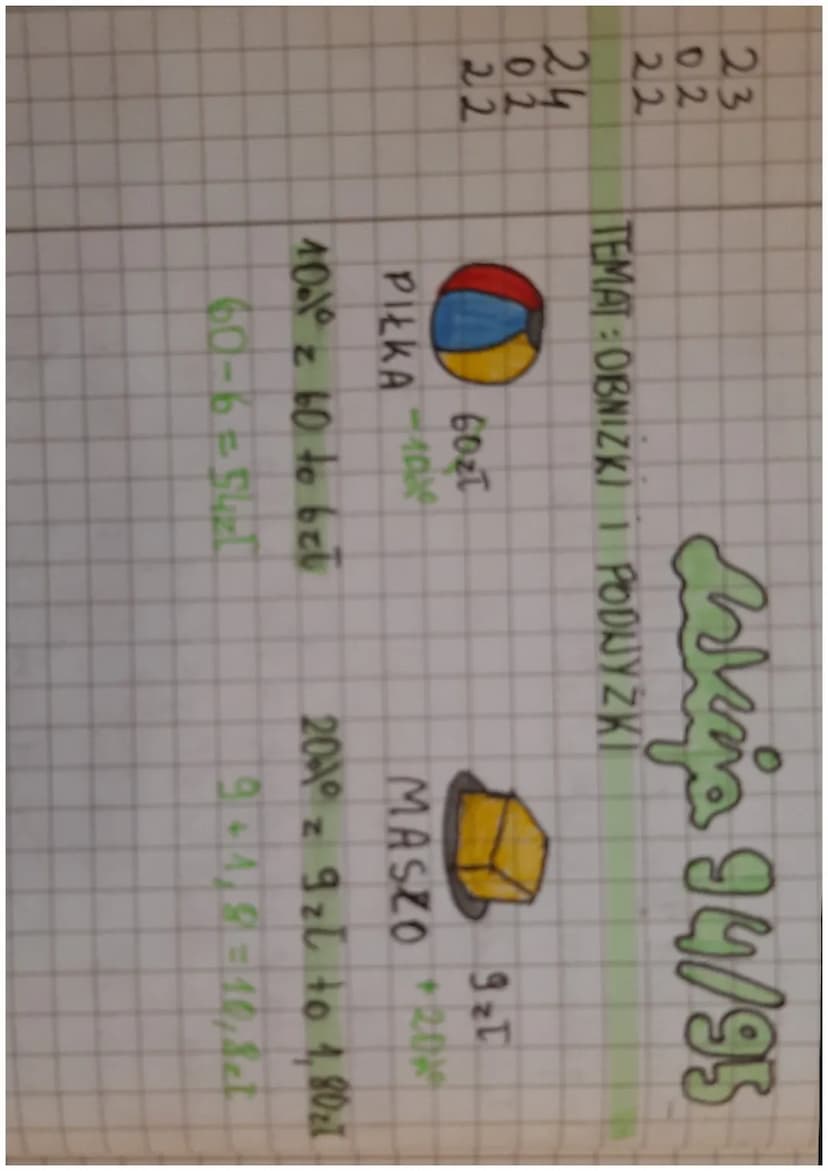 23
02
22
Lekcja 94/95
TEMAT: OBNIŻKI I PODWYŻKI
24
02
22
60zł
9zł
PIŁKA -10%
MASŁO +20%
10% z 60 to 6zł
20% z 9zł to 1,80zł
60-6=54zł
9+1,8=10,8zł